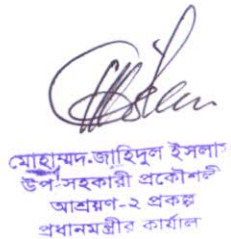 মোহাম্মদ জাহিদুল ইসলাম
উপ-সহকারী প্রকৌশলী
আশ্রয়ণ-২ প্রকল্প
প্রধানমন্ত্রীর কার্যাল